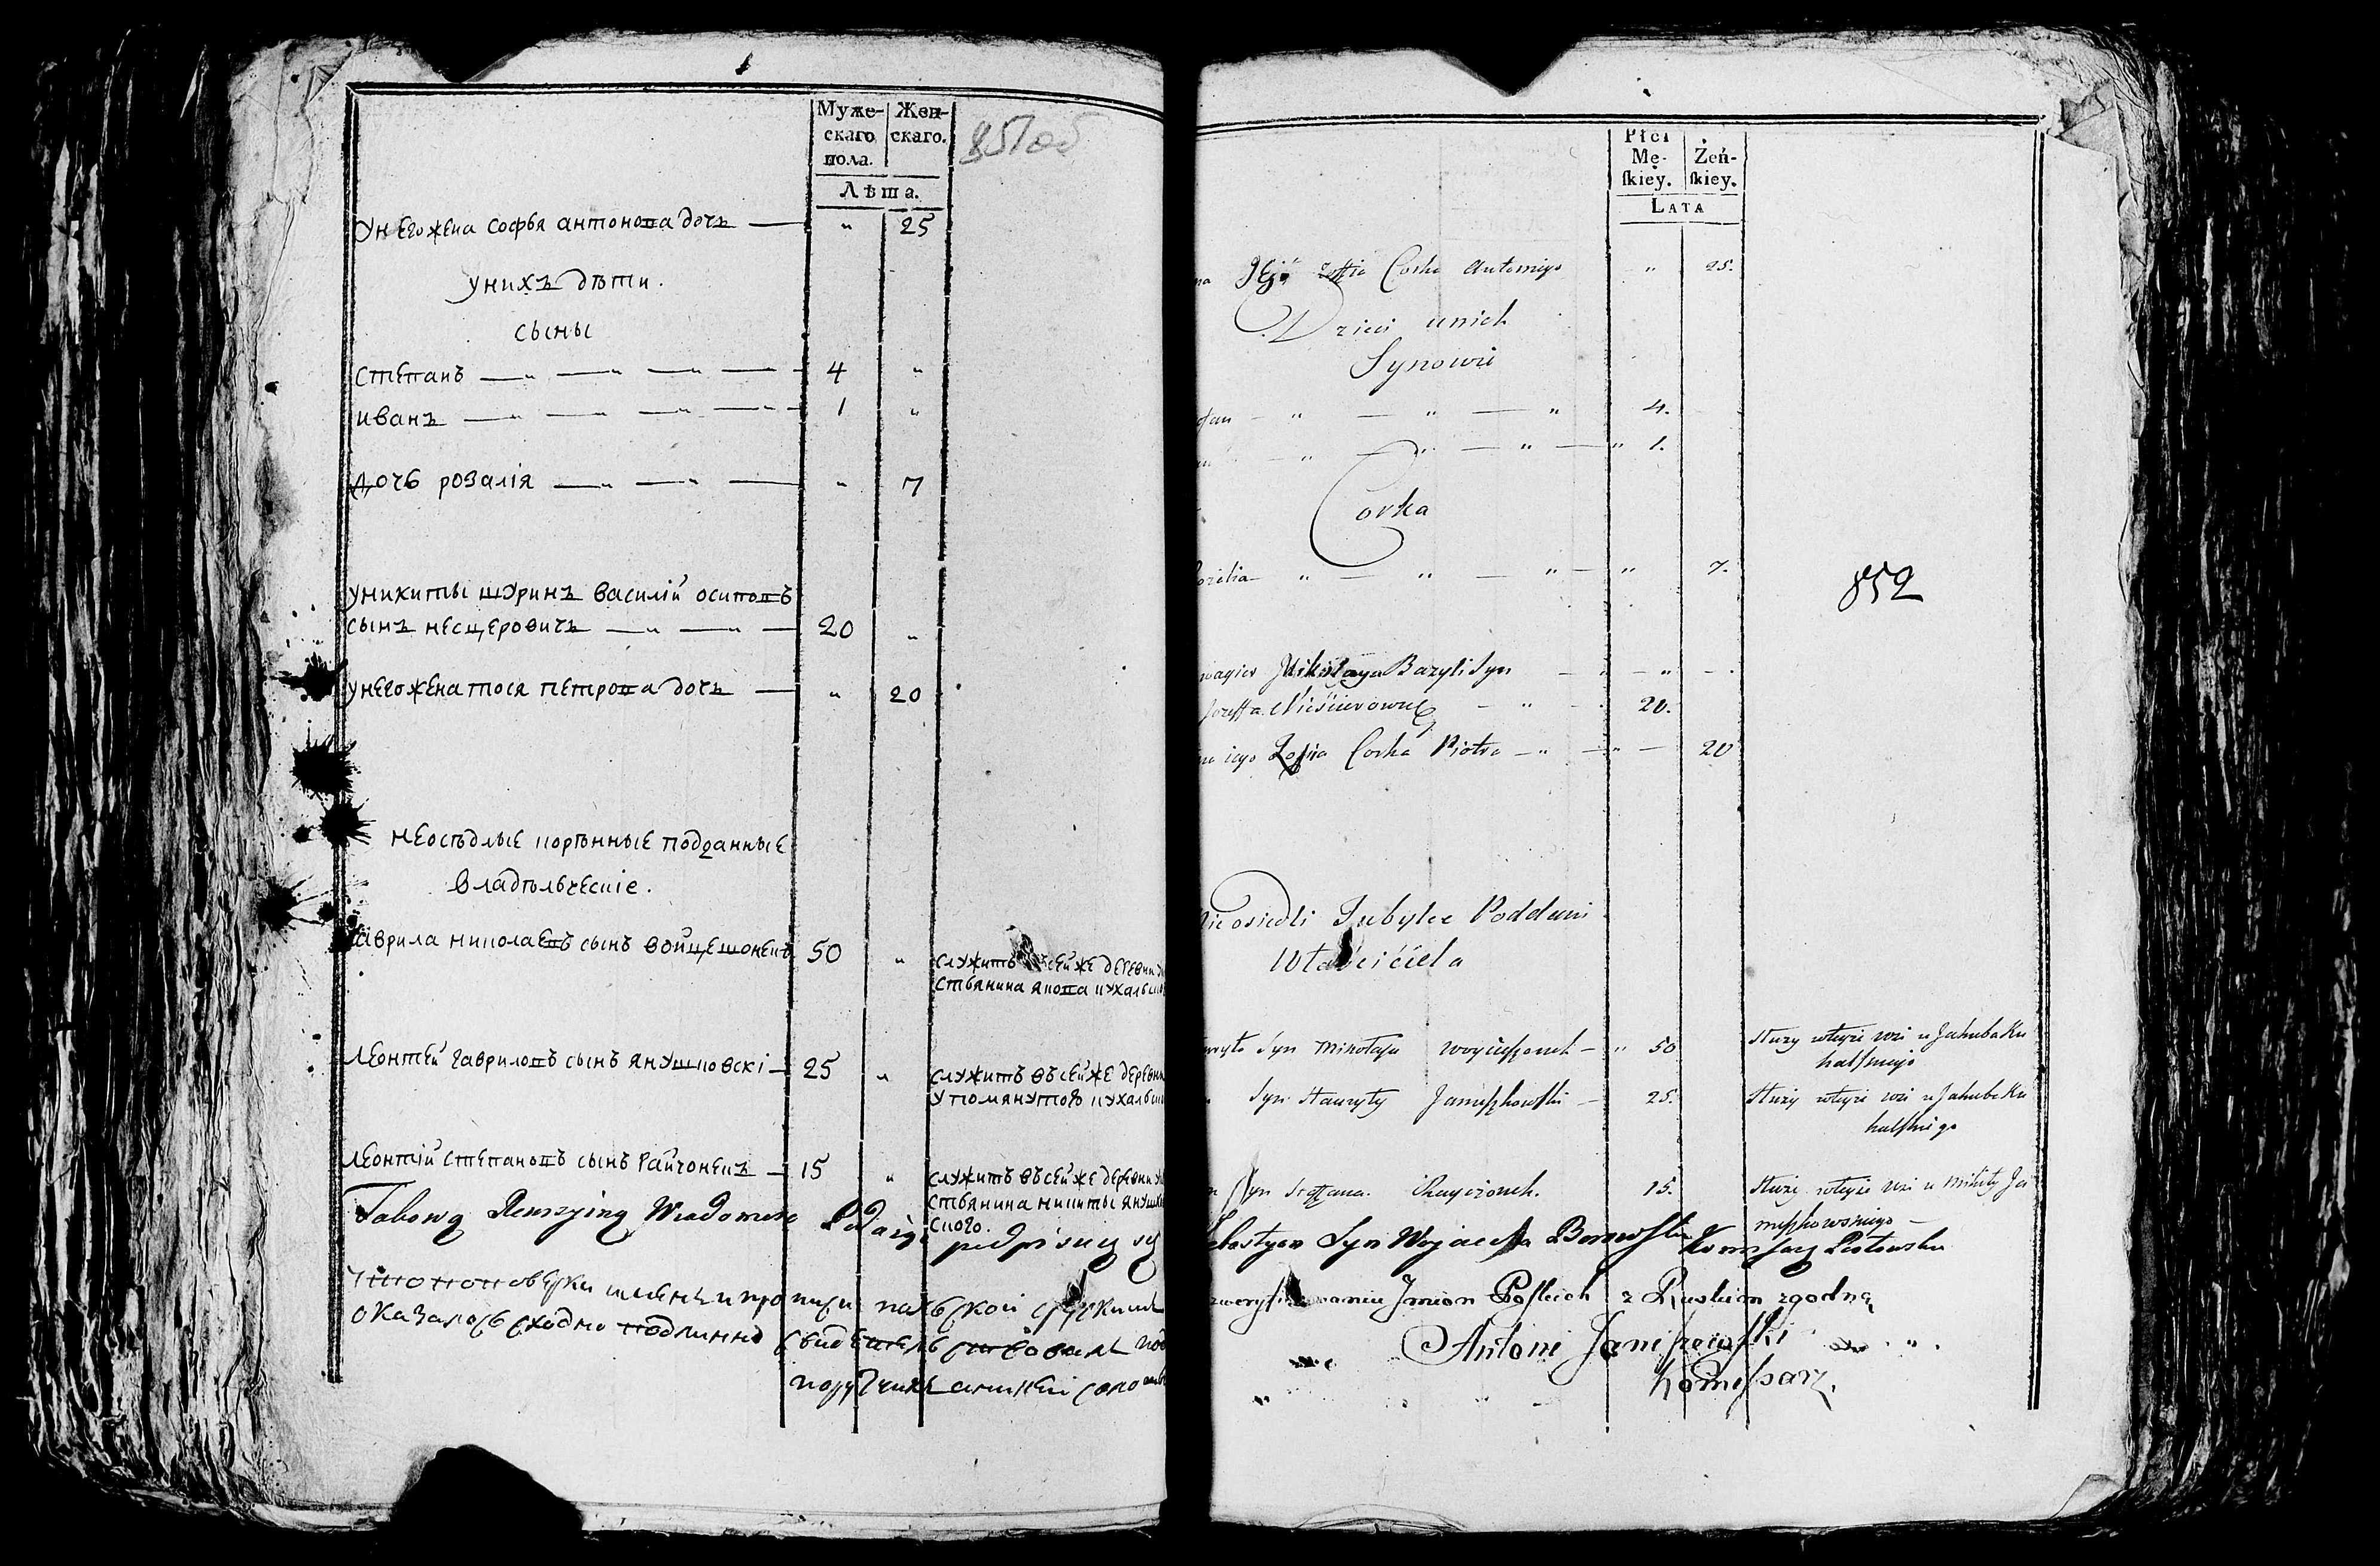 Муже-
скаго
пола.
Жен-
скаго.
Лѣта.
851 об
у него жена софья антонова дочь — " 25
у нихъ дѣти.
сыны
степанъ — " — " — " — 4 "
иванъ — " — " — " — 1 "
дочь розалія — " — " — " 7
у никиты шуринъ василій осиповъ
сынъ несцеровичъ — " — " — 20 "
у него жена тося петрова дочь — " 20
неосѣдлые коренные подданные
владѣльческіе.
гаврила николаевъ сынъ войцешонекъ 50 "
служитъ въ сей же деревни
стьянина якова кухальск
леонтей гавриловъ сынъ янушковскі — 25 "
служитъ въ сей же деревни
упомянутого кухальск
леонтій степановъ сынъ райчонекъ — 15 "
служитъ въ сей же деревни у
стьянина никиты янушк
ского.
Takową Rewizyiną Wiadomość Podaię podpisuię się
оказалось сходно подлинно
Płci
Mę-
ſkiey.
Żeń-
ſkiey.
LATA
Zoffia Corka Antoniego " 25.
Dzieci u nich
Synowie
fan — " — " — " 4.
— " — " — " — " 1.
Corka
ozalia — " — " — " — " 7.
852
wagier Mikołaya Bazyli Syn — " — " — "
Jozeffa Nieścierowicz — " — 20.
na iego Zofia Corka Piotra — " — " — 20
Nie osiedli Poddani
Właściciela
wryło Syn Mikołaja Woycieszonek — " 50
Służy w teyże wsi u Jakuba Ku
halſkiego
Syn Hauryły Januszkowſki — 25.
Służy w teyże wsi u Jakuba Ku
halſkiego
Syn Steffana Rayczonek. 15.
Służy w teyże wsi u Mikity Ja
nuszkowskiego —
ebastyan Syn Woyciecha
Imion Polſkich z Ruskim zgodne
Antoni
Komiſsarz.